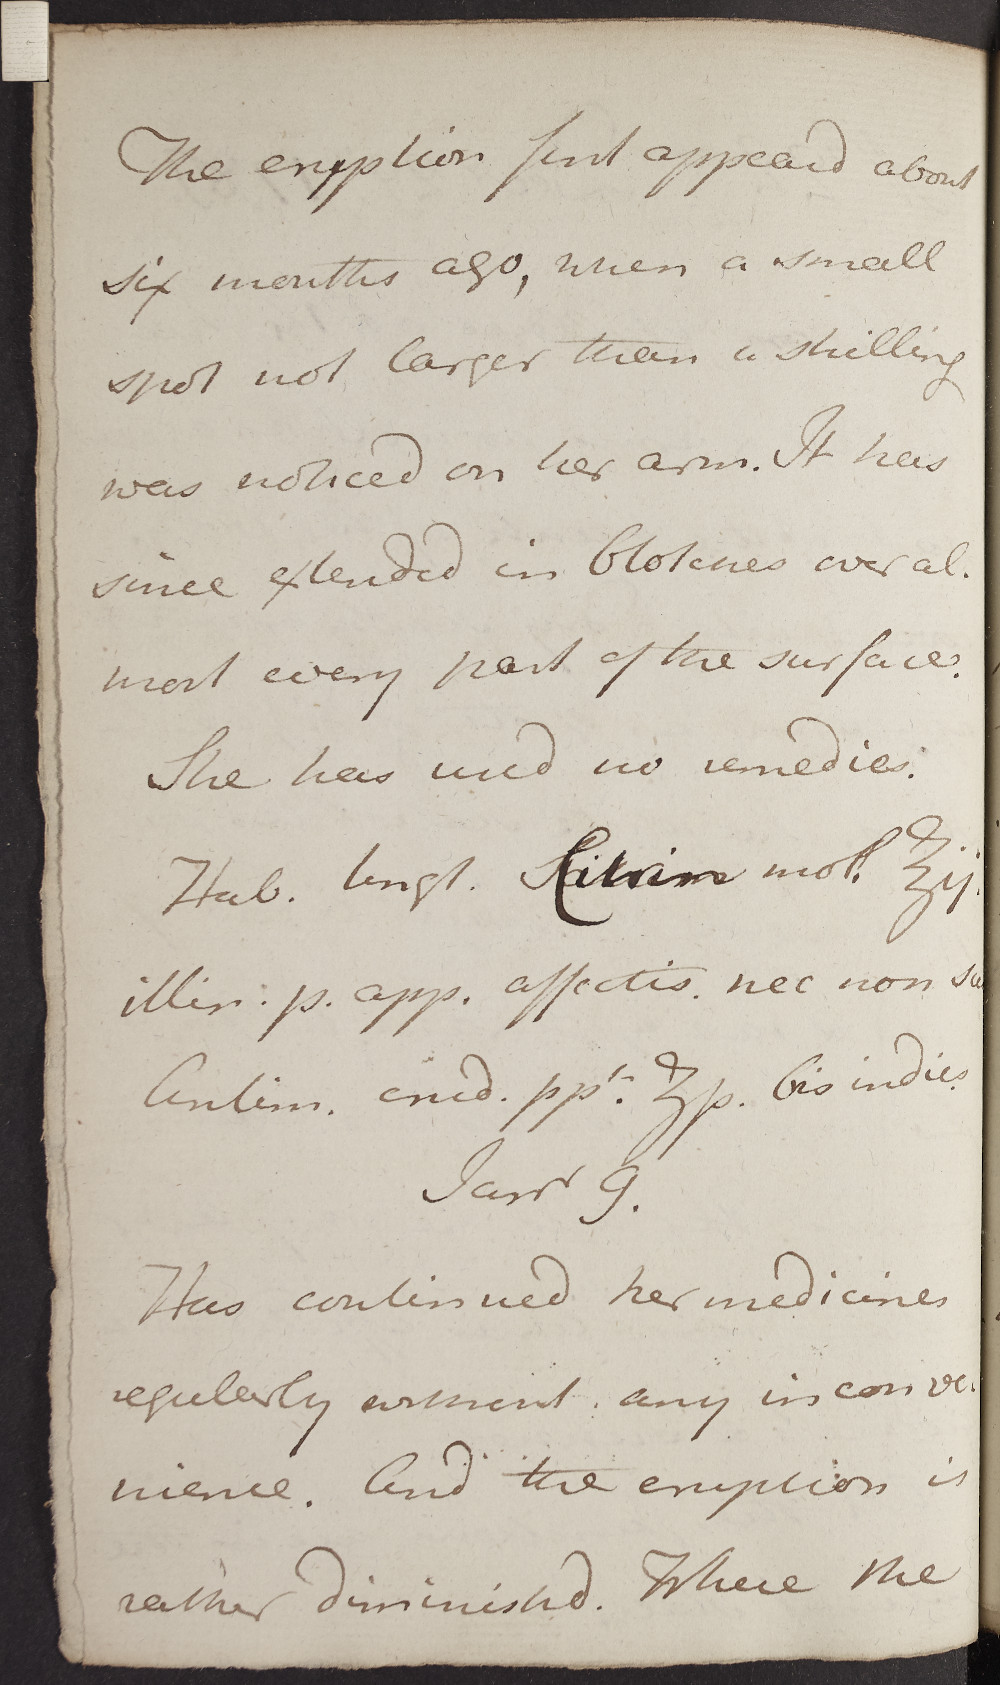 The eruption first appeard about
six months ago, when a small
spot not larger than a shilling
was noticed on her arm. It has
since extended in blotches over al-
most every part of the surface.
She has used no remedies.
Hab. Ungt. Citrin mol. ℥ij.
illin. p. app. affectis. nec non
Antim. crud. ppt. ʒp. bis indies
Janr 9.
Has continued her medicines
regularly without any inconve-
nience. And the eruption is
rather diminishd. Where the